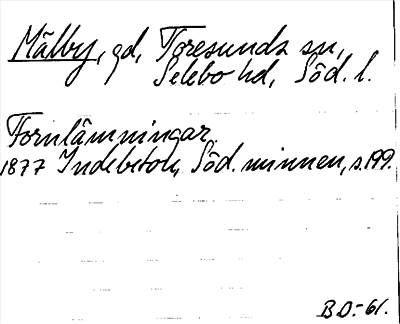 Mälby, gd, Toresunds sn,
Selebo hd, Söd. l.
Fornlämningar.
1877 Indebetou, Söd. minnen, s. 199.
B D.-61.